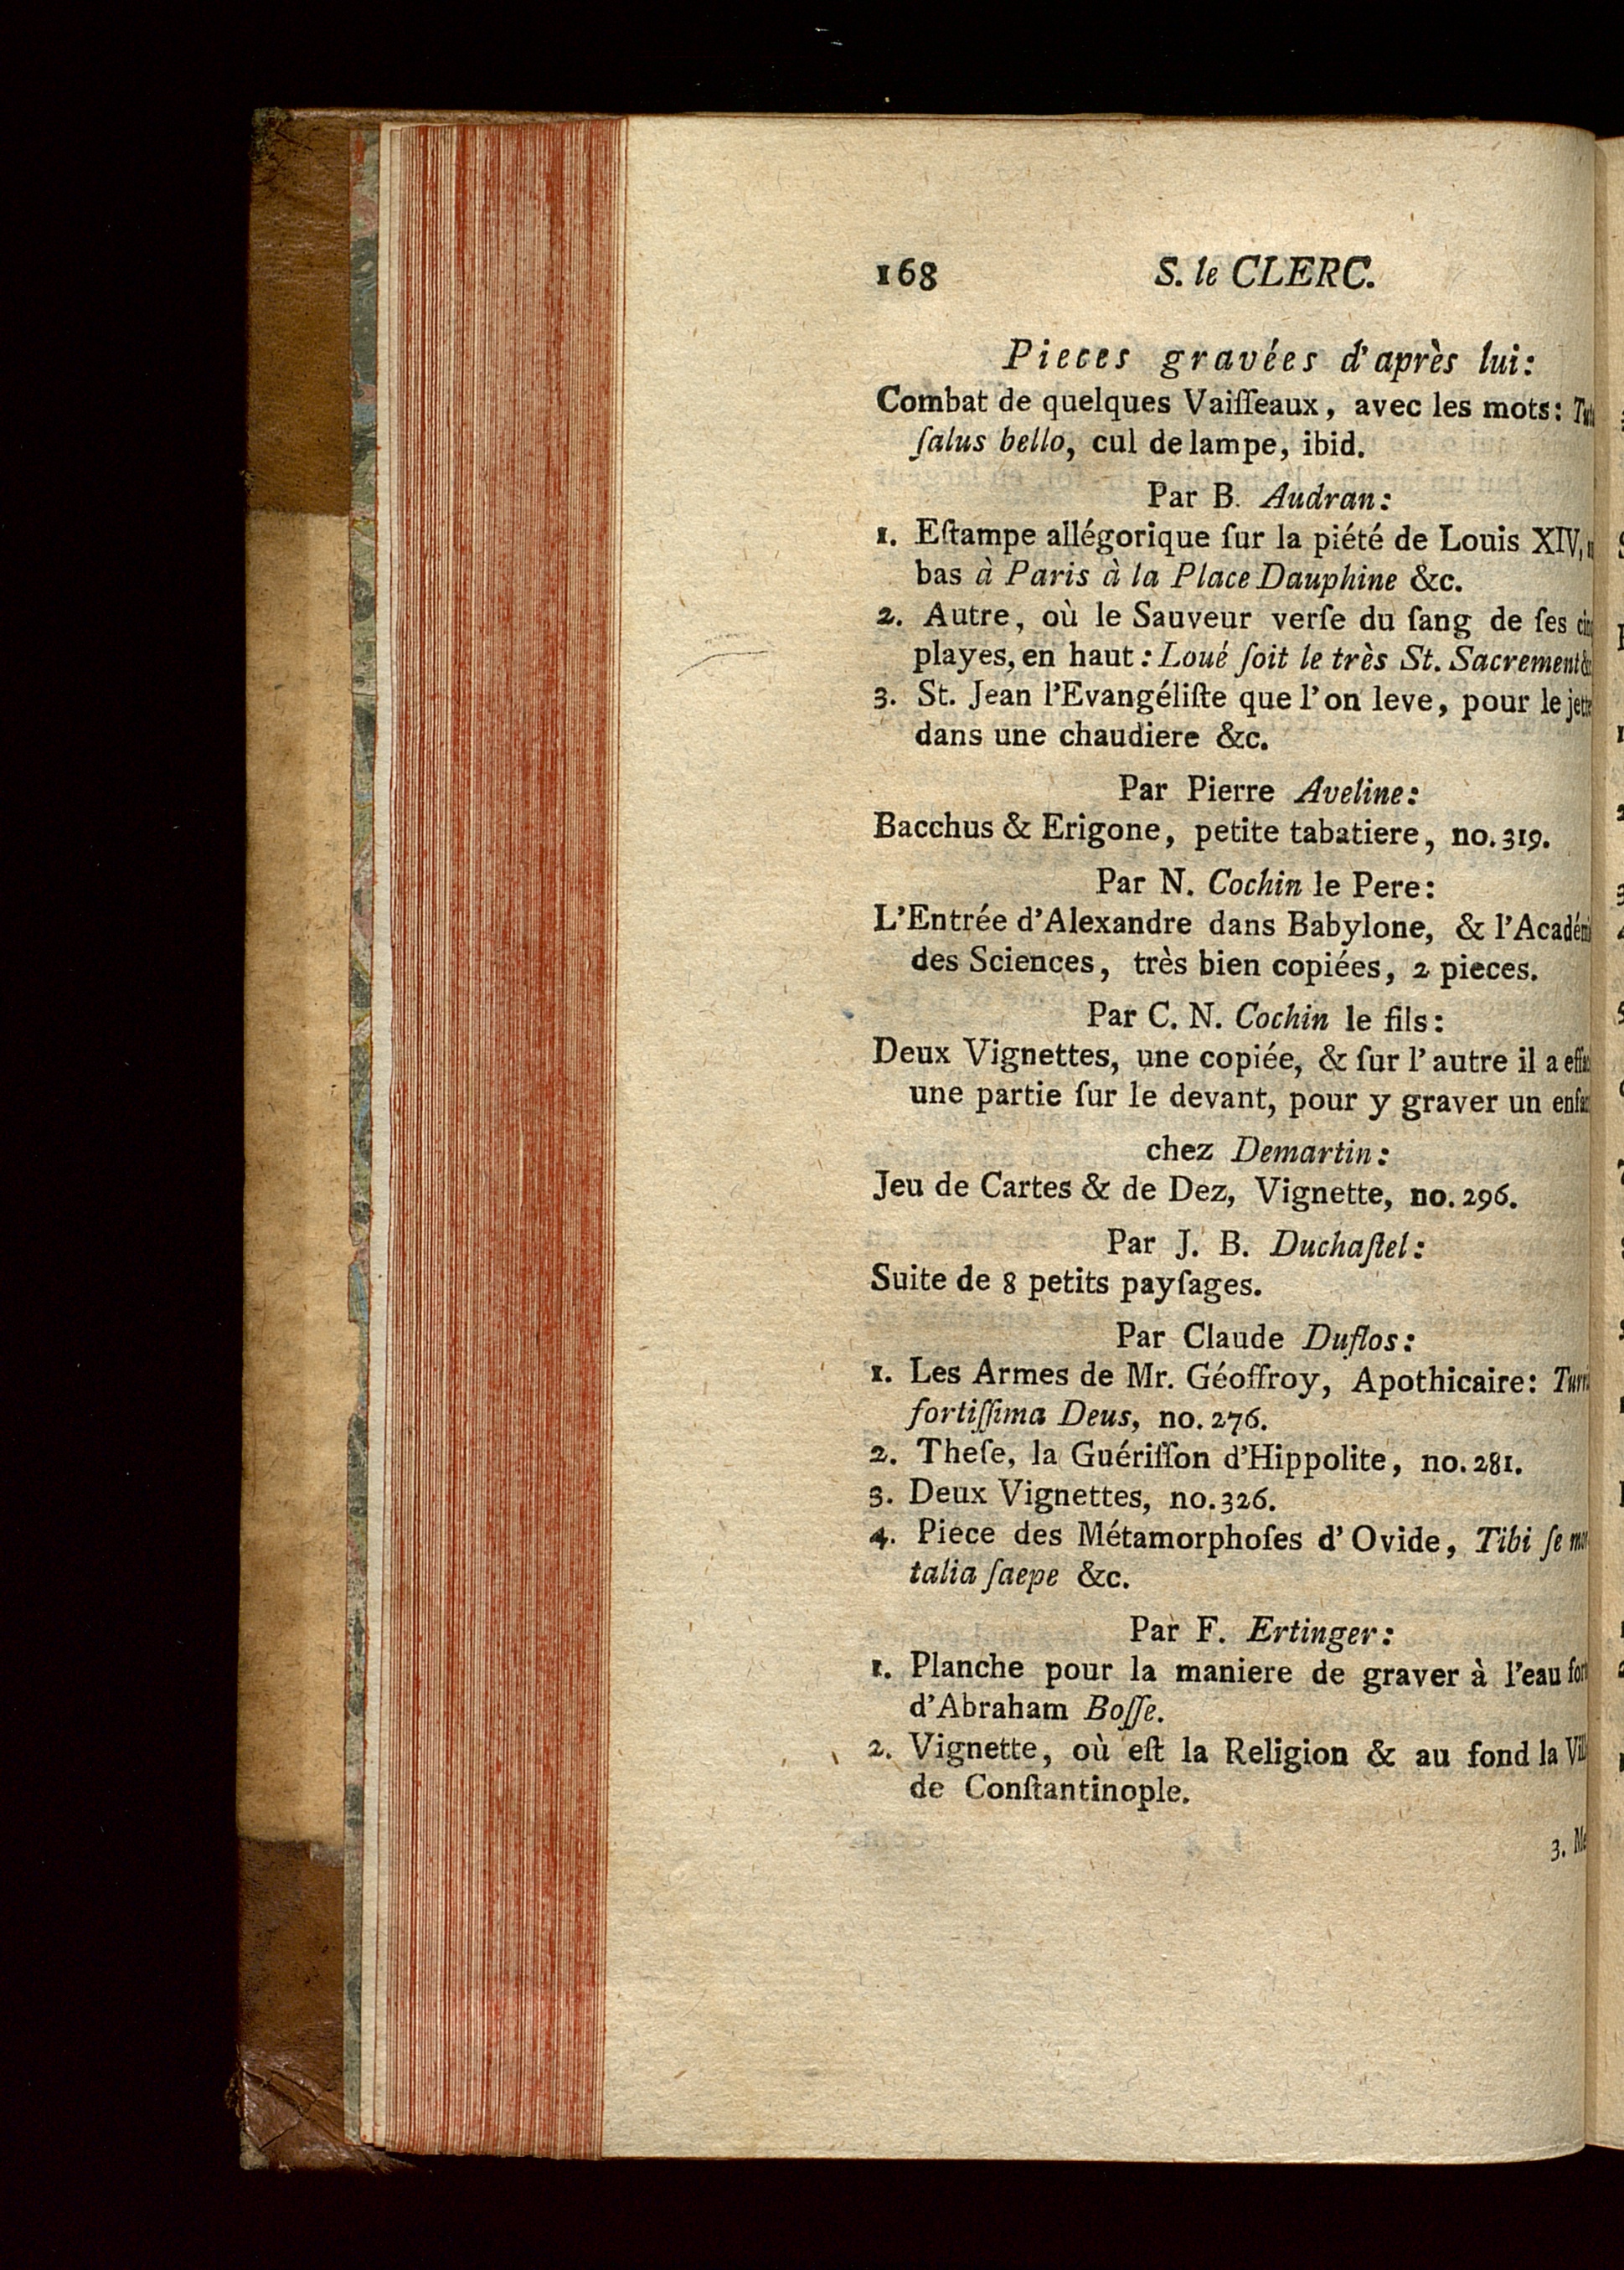 168 S. le CLERC.
Pieces gravées d'après lui:
Combat de quelques Vaiſſeaux, avec les mots:
ſalus bello, cul de lampe, ibid.
Par B. Audran:
1. Eſtampe allégorique ſur la piété de Louis XIV,
bas à Paris à la Place Dauphine &c.
2. Autre, où le Sauveur verſe du ſang de ſes
playes, en haut: Loué ſoit le très St. Sacrement
3. St. Jean l'Evangéliſte que l'on leve, pour le
dans une chaudiere &c.
Par Pierre Aveline:
Bacchus & Erigone, petite tabatiere, no. 319.
Par N. Cochin le Pere:
L'Entrée d'Alexandre dans Babylone, &
des Sciences, très bien copiées, 2 pieces.
Par C. N. Cochin le fils:
Deux Vignettes, une copiée, & ſur l'autre il a
une partie ſur le devant, pour y graver un
chez Demartin:
Jeu de Cartes & de Dez, Vignette, no. 296.
Par J. B. Duchaſtel:
Suite de 8 petits payſages.
Par Claude Duflos:
1. Les Armes de Mr. Géoffroy, Apothicaire:
fortiſſima Deus, no. 276.
2. Theſe, la Guériſſon d'Hippolite, no. 281.
3. Deux Vignettes, no. 326.
4. Piece des Métamorphoſes d'Ovide, Tibi ſe
talia ſaepe &c.
Par F. Ertinger:
1. Planche pour la maniere de graver à l'eau
d'Abraham Boſſe.
2. Vignette, où eſt la Religion & au fond la
de Conſtantinople.
3.